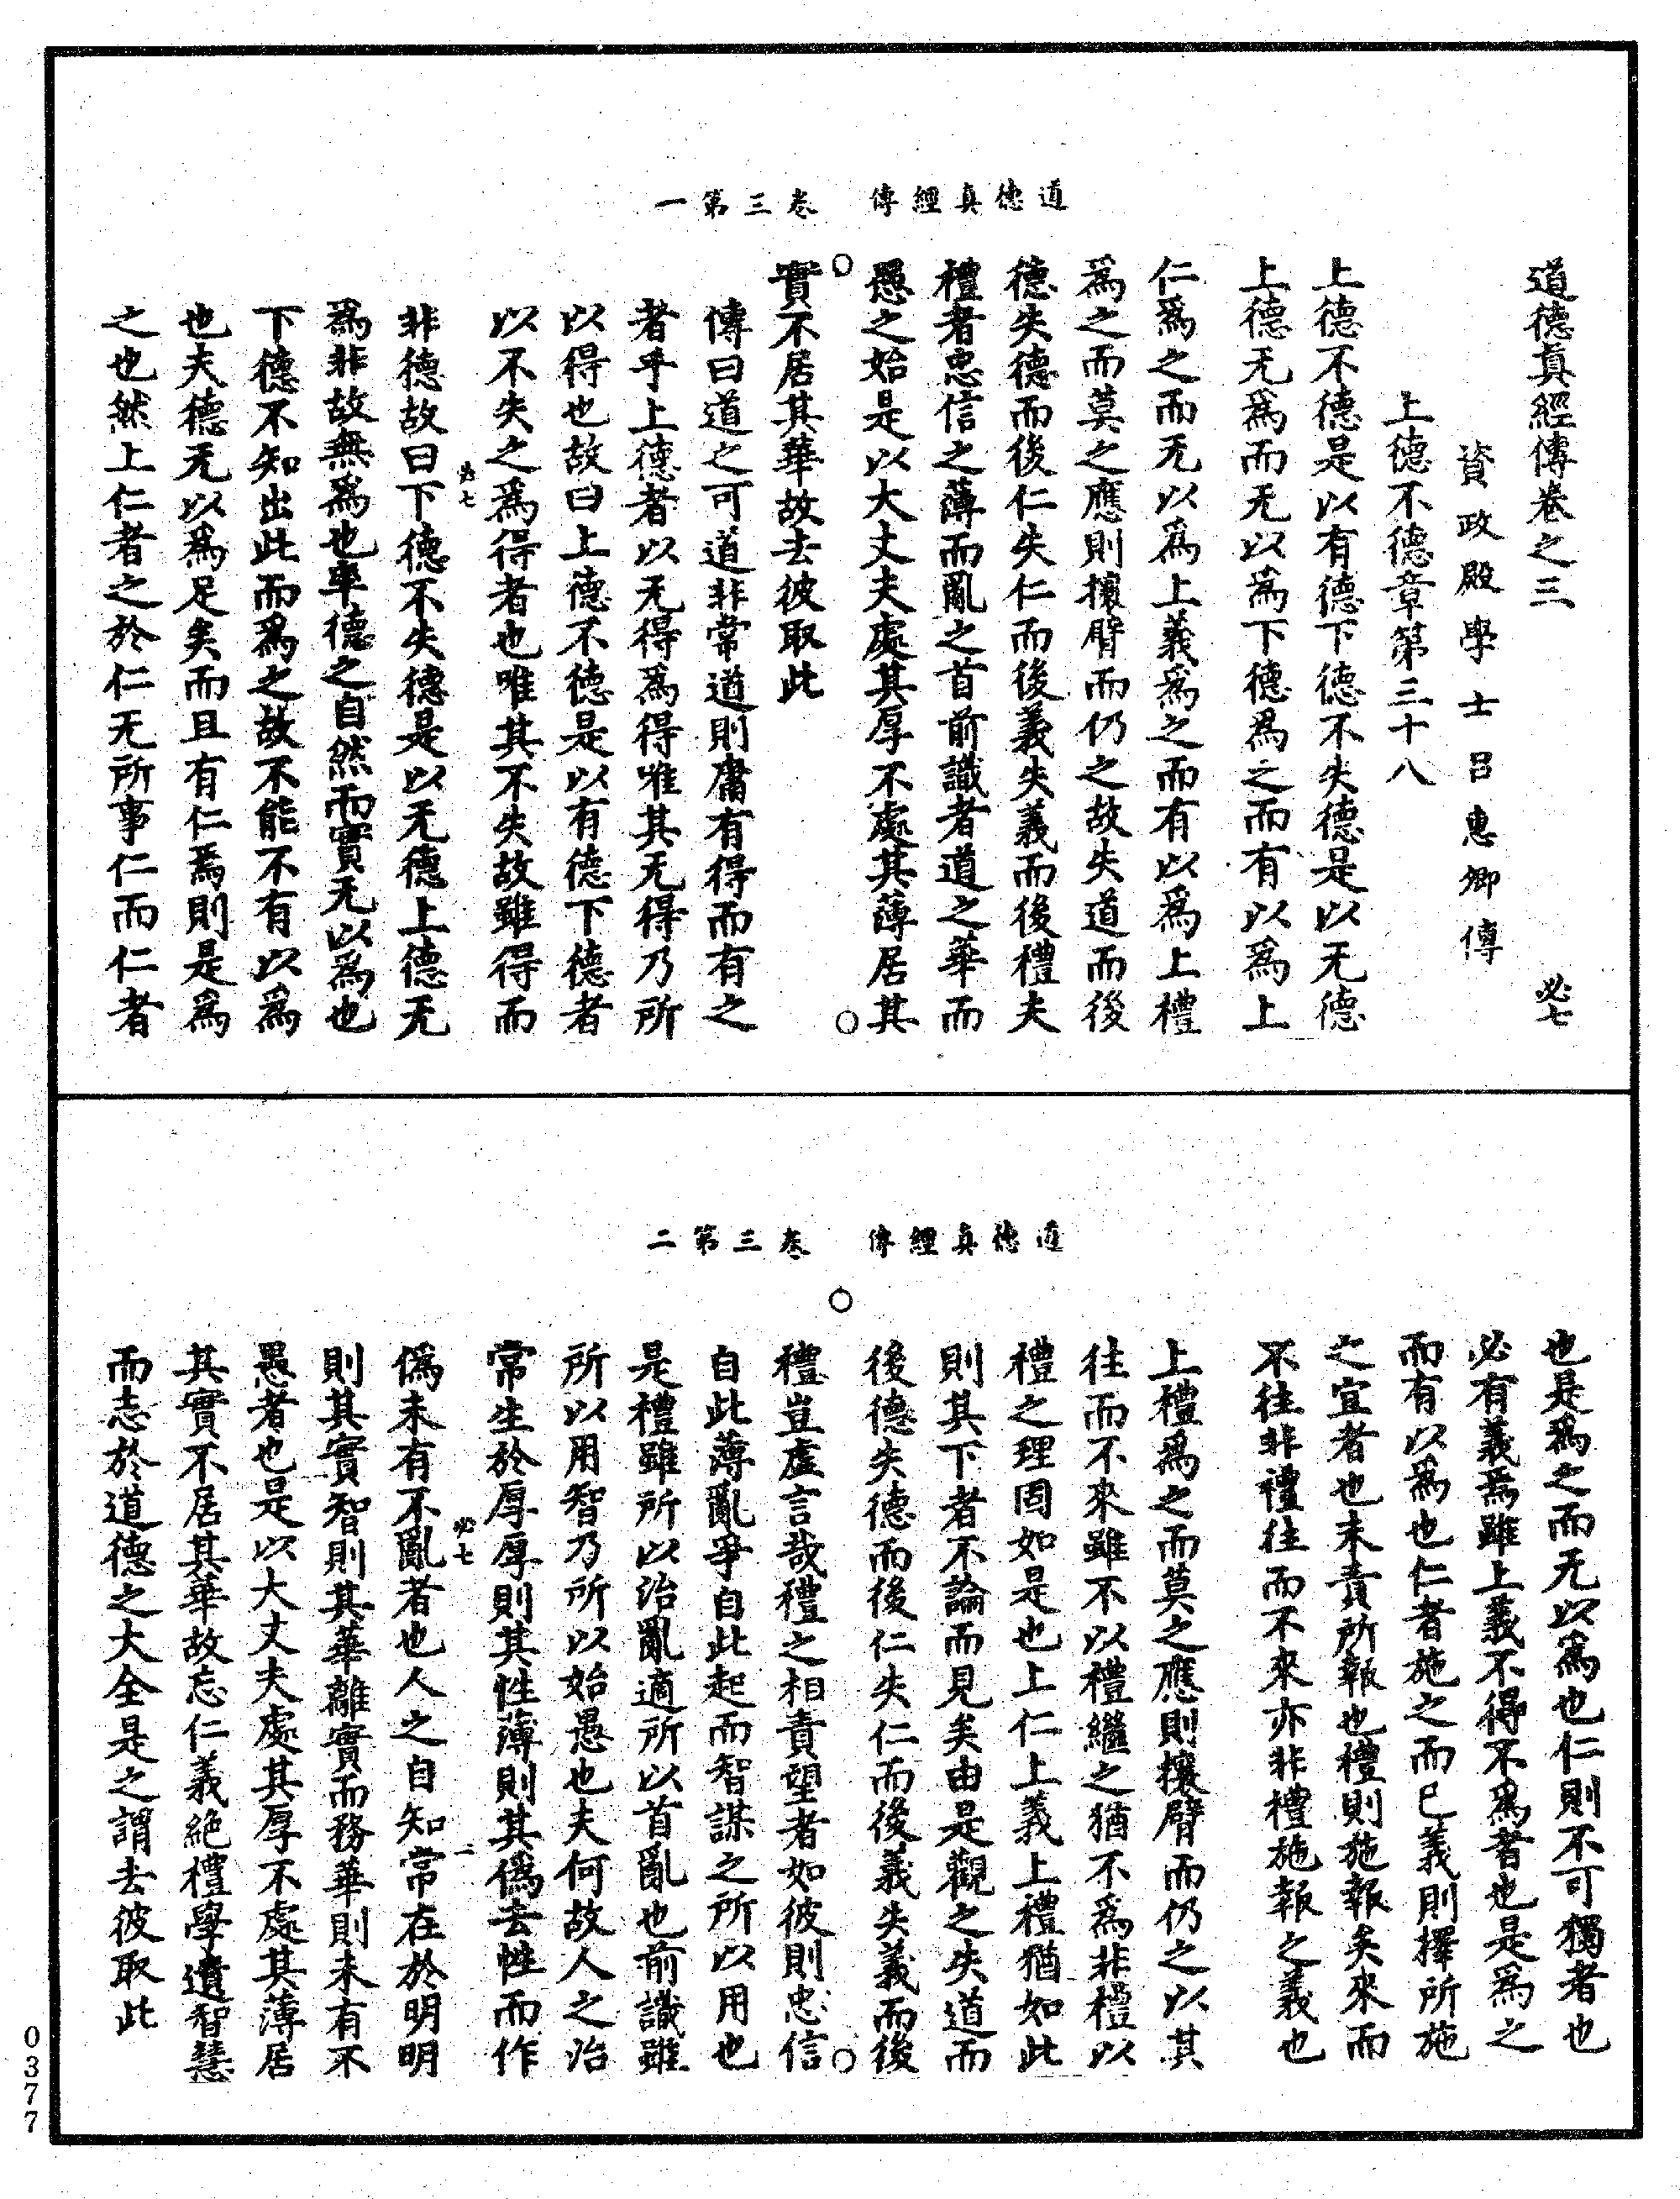 道德真經傳　卷三第一
道德真經傳卷之三　必七
資政殿學士呂惠卿傳
上德不德章第三十八
上德不德是以有德下德不失德是以无德
上德无爲而无以爲下德爲之而有以爲上
仁爲之而无以爲上義爲之而有以爲上禮
爲之而莫之應則攘臂而仍之故失道而後
德失德而後仁失仁而後義失義而後禮夫
禮者忠信之薄而亂之首前識者道之華而
愚之始是以大丈夫處其厚不處其薄居其
實不居其華故去彼取此
傳曰道之可道非常道則庸有得而有之
者乎上德者以无得爲得唯其无得乃所
以得也故曰上德不德是以有德下德者
以不失之爲得者也唯其不失故雖得而
必七
非德故曰下德不失德是以无德上德无
爲非故無爲也率德之自然而實无以爲也
下德不知出此而爲之故不能不有以爲
也夫德无以爲足矣而且有仁焉則是爲
之也然上仁者之於仁无所事仁而仁者
道德真經傳　卷三第二
也是爲之而无以爲也仁則不可獨者也
必有義焉雖上義不得不爲者也是爲之
而有以爲也仁者施之而已義則擇所施
之宜者也未責所報也禮則施報矣來而
不往非禮往而不來亦非禮施報之義也
上禮爲之而莫之應則攘臂而仍之以其
往而不來雖不以禮繼之猶不爲非禮以
禮之理固如是也上仁上義上禮猶如此
則其下者不論而見矣由是觀之失道而
後德失德而後仁失仁而後義失義而後
禮豈虛言哉禮之相責望者如彼則忠信
自此薄亂爭自此起而智謀之所以用也
是禮雖所以治亂適所以首亂也前識雖
所以用智乃所以始愚也夫何故人之治
常生於厚厚則其性薄則其僞去性而作
必七　二
僞未有不亂者也人之自知常在於明明
則其實智則其華離實而務華則未有不
愚者也是以大丈夫處其厚不處其薄居
其實不居其華故忘仁義絕禮學遺智慧
而志於道德之大全是之謂去彼取此
0377